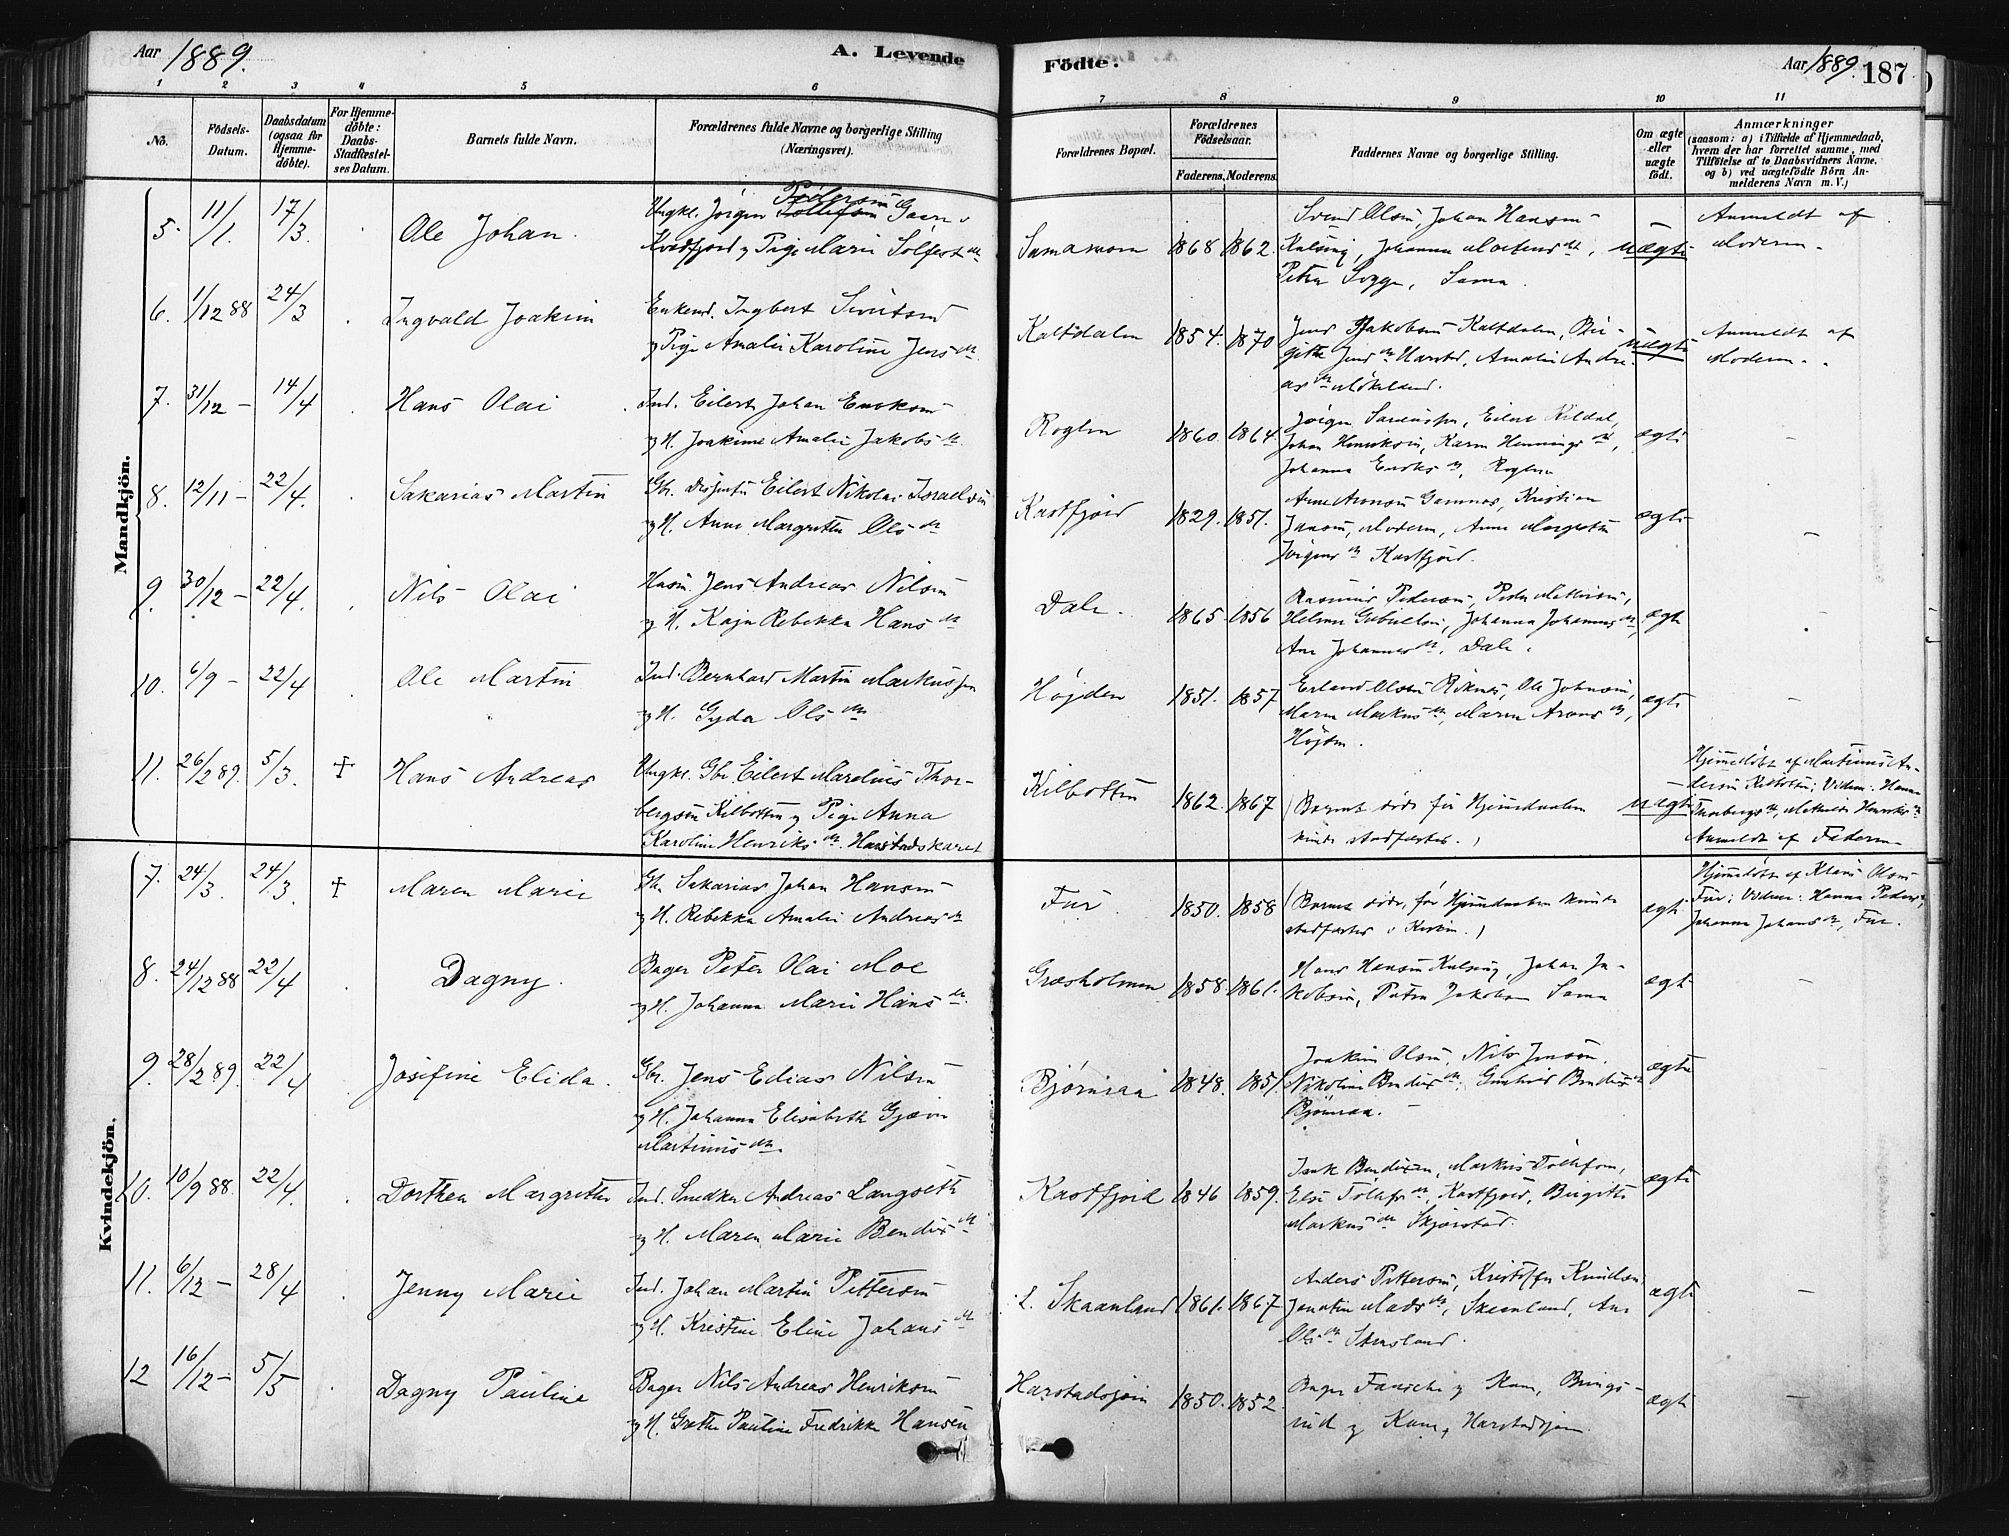 Aar 1889.
A. Levende
Födte.
Aar 1889. 187
1 2 3 4 5 6 7 8 9 10 11
No.
Födsels-Datum.
Daabsdatum (ogsaa för Hjemme-döbte).
For Hjemme-döbte: Daabs-Stadfæstel-ses Datum.
Barnets fulde Navn.
Forældrenes fulde Navne og borgerlige Stilling (Næringsvei).
Forældrenes Bopæl.
Forældrenes Födselsaar.
Faderens. Moderens.
Faddernes Navne og borgerlige Stilling.
Om ægte eller uægte födt.
Anmærkninger
(saasom: a) i Tilfælde af Hjemmedaab,
hvem der har forrettet samme, med
Tilföielse af to Daabsvidners Navne,
og b) ved uægtefödte Börn An-
melderens Navn m. V.)
Mandkjön.
5. 11/1. 17/3. Ole Johan.
Ungk. Jörgen Pedersen
Kvedfjord og Pige Marie
1868 1862.
Svend Olsen, Johan Hansen
Kulseng, Johanna
Petra Sama.
uægte
Anmeldt af
Moderen.
6. 1/12 88 24/3 Ingvald Joakim
Enkemd. Ingbert Sivertsen
og Pige Amalie Karoline Jensdtr
Kaltdalen 1854. 1870
Jens Jakobsen Kaltdalen, Bir-
gitte Jensdtr Harstad, Amalie Andre-
asdtr
uægte
Anmeldt af
Moderen.
7. 31/12 – 14/4 Hans Olai
Ind. Eilert Johan Enoksen
og H. Joakime Amalie Jakobsdtr.
Roglen 1860. 1864.
Jörgen Eilert Kildal,
Johan Henriksen, Karen Henningsdtr,
Johanna Enoksdtr, Roglen
ægte –
8. 12/11 – 22/4. Sakarias Martin
Gbr. Eilert Nikolai Israelsen
og H. Anne Margrethe Olsdtr
Kastfjord 1829. 1851.
Arne Aronsen Gamnes, Kristian
Jensen, Moderen, Anne Margrethe
Jörgensdtr Kastfjord.
ægte –
9. 30/12 – 22/4. Nils Olai
Husm. Jens Andreas Nilsen
og H. Kaja Rebekka Hansdtr
Dale. 1865. 1856
Rasmus Pedersen, Peder
Johanna Johannesdtr,
Ane Johannesdtr, Dale.
ægte –
10. 6/9 – 22/4 Ole Martin
Ind. Bernhard Martin Markussen
og H. Gyda Olsdtr
Höjden 1851. 1857
Erland Olsen Röknes, Ole Johnsen,
Maren Markusdtr, Maren Aronsdtr,
Höjden.
ægte –
11. 26/2 89. 5/3. † Hans Andreas
Ungk. Gbr. Eilert Marelius Thor-
bergsen Kilbotten og Pige Anna
Karoline Henriksdtr. Harstadskaret
Kilbotten 1862. 1867
(Barnet døde før Hjemmedaaben
kunde stadfæstes.)
uægte
Hjemmedøbt af Martinus An-
dersen Kilbotten; Vidner: Hanna
Thorbergsdtr, Mathilde Henriksdtr
Anmeldt af Faderen
Kvindekjön.
7. 24/3. 24/3. † Maren Marie
Gbr. Sakarias Johan Hansen
og H. Rebekka Amalie Andreasdtr
Fur. 1850. 1858
(Barnet døde, før Hjemmedaaben kunde
stadfæstes i Kirken.)
ægte
Hjemmedøbt af Olsen
Fur; Vidner: Hanna Pedersdtr,
Johanna Johansdtr, Fur.
8. 24/12 88 22/4 Dagny.
Bager Peter Olai Moe
og H. Johanna Marie Hansdtr.
Græsholmen 1858. 1861.
Hans Hansen Kulseng, Johan Ja-
kobsen, Petra Jakobsen Sama
ægte –
9. 28/2 89. 22/4 Josefine Elida.
Gbr. Jens Edias Nilsen
og H. Johanna Elisabeth Gjæver
Martinusdtr.
Bjørnraa 1848. 1851.
Joakim Olsen, Nils Jensen,
Nikoline Bendixdtr, Bendixdtr
Bjørnraa.
ægte
10. 10/9 88. 22/4. Dorthea Margrethe
Ind. Snedker Andreas Langseth
og H. Maren Marie Bendixdtr
Kastfjord 1846 1859.
Isak Bendixen, Markus Tollefsen,
Else Tollefsdtr, Kastfjord, Birgitte
Markusdtr Skjærstad.
ægte
11. 6/12 – 28/4 Jenny Marie
Ind. Johan Martin Pettersen
og H. Kristine Eline Johansdtr
L. Skaanland 1861. 1867
Anders Pettersen, Kristoffer Knudsen
Madsdtr, Skaanland, Ane
Olsdtr
ægte –
12 16/12 – 5/5 Dagny Pauline
Bager Nils Andreas Henriksen
og H. Grethe Pauline Fredrikke Hansen
Harstadsjøen 1850. 1852.
Bager og Kone, Brings-
rud og Kone, Harstadsjøen.
ægte –